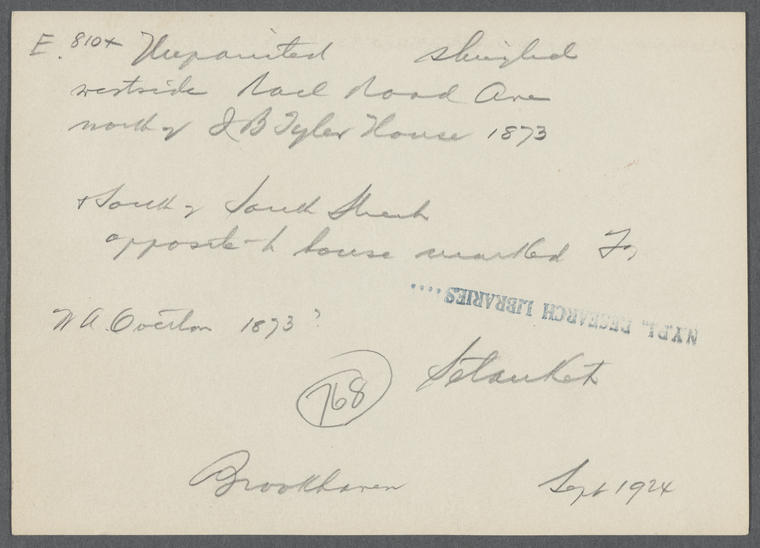 E. 810+ Unpainted shingled
westside Rail Road Ave
north of J B Tyler House 1873
+ South of South Street
opposite house marked
N.Y.P.L. RESEARCH LIBRARIES....
W A. Overton 1873?
768 Setauket
Brookhaven Sept 1924